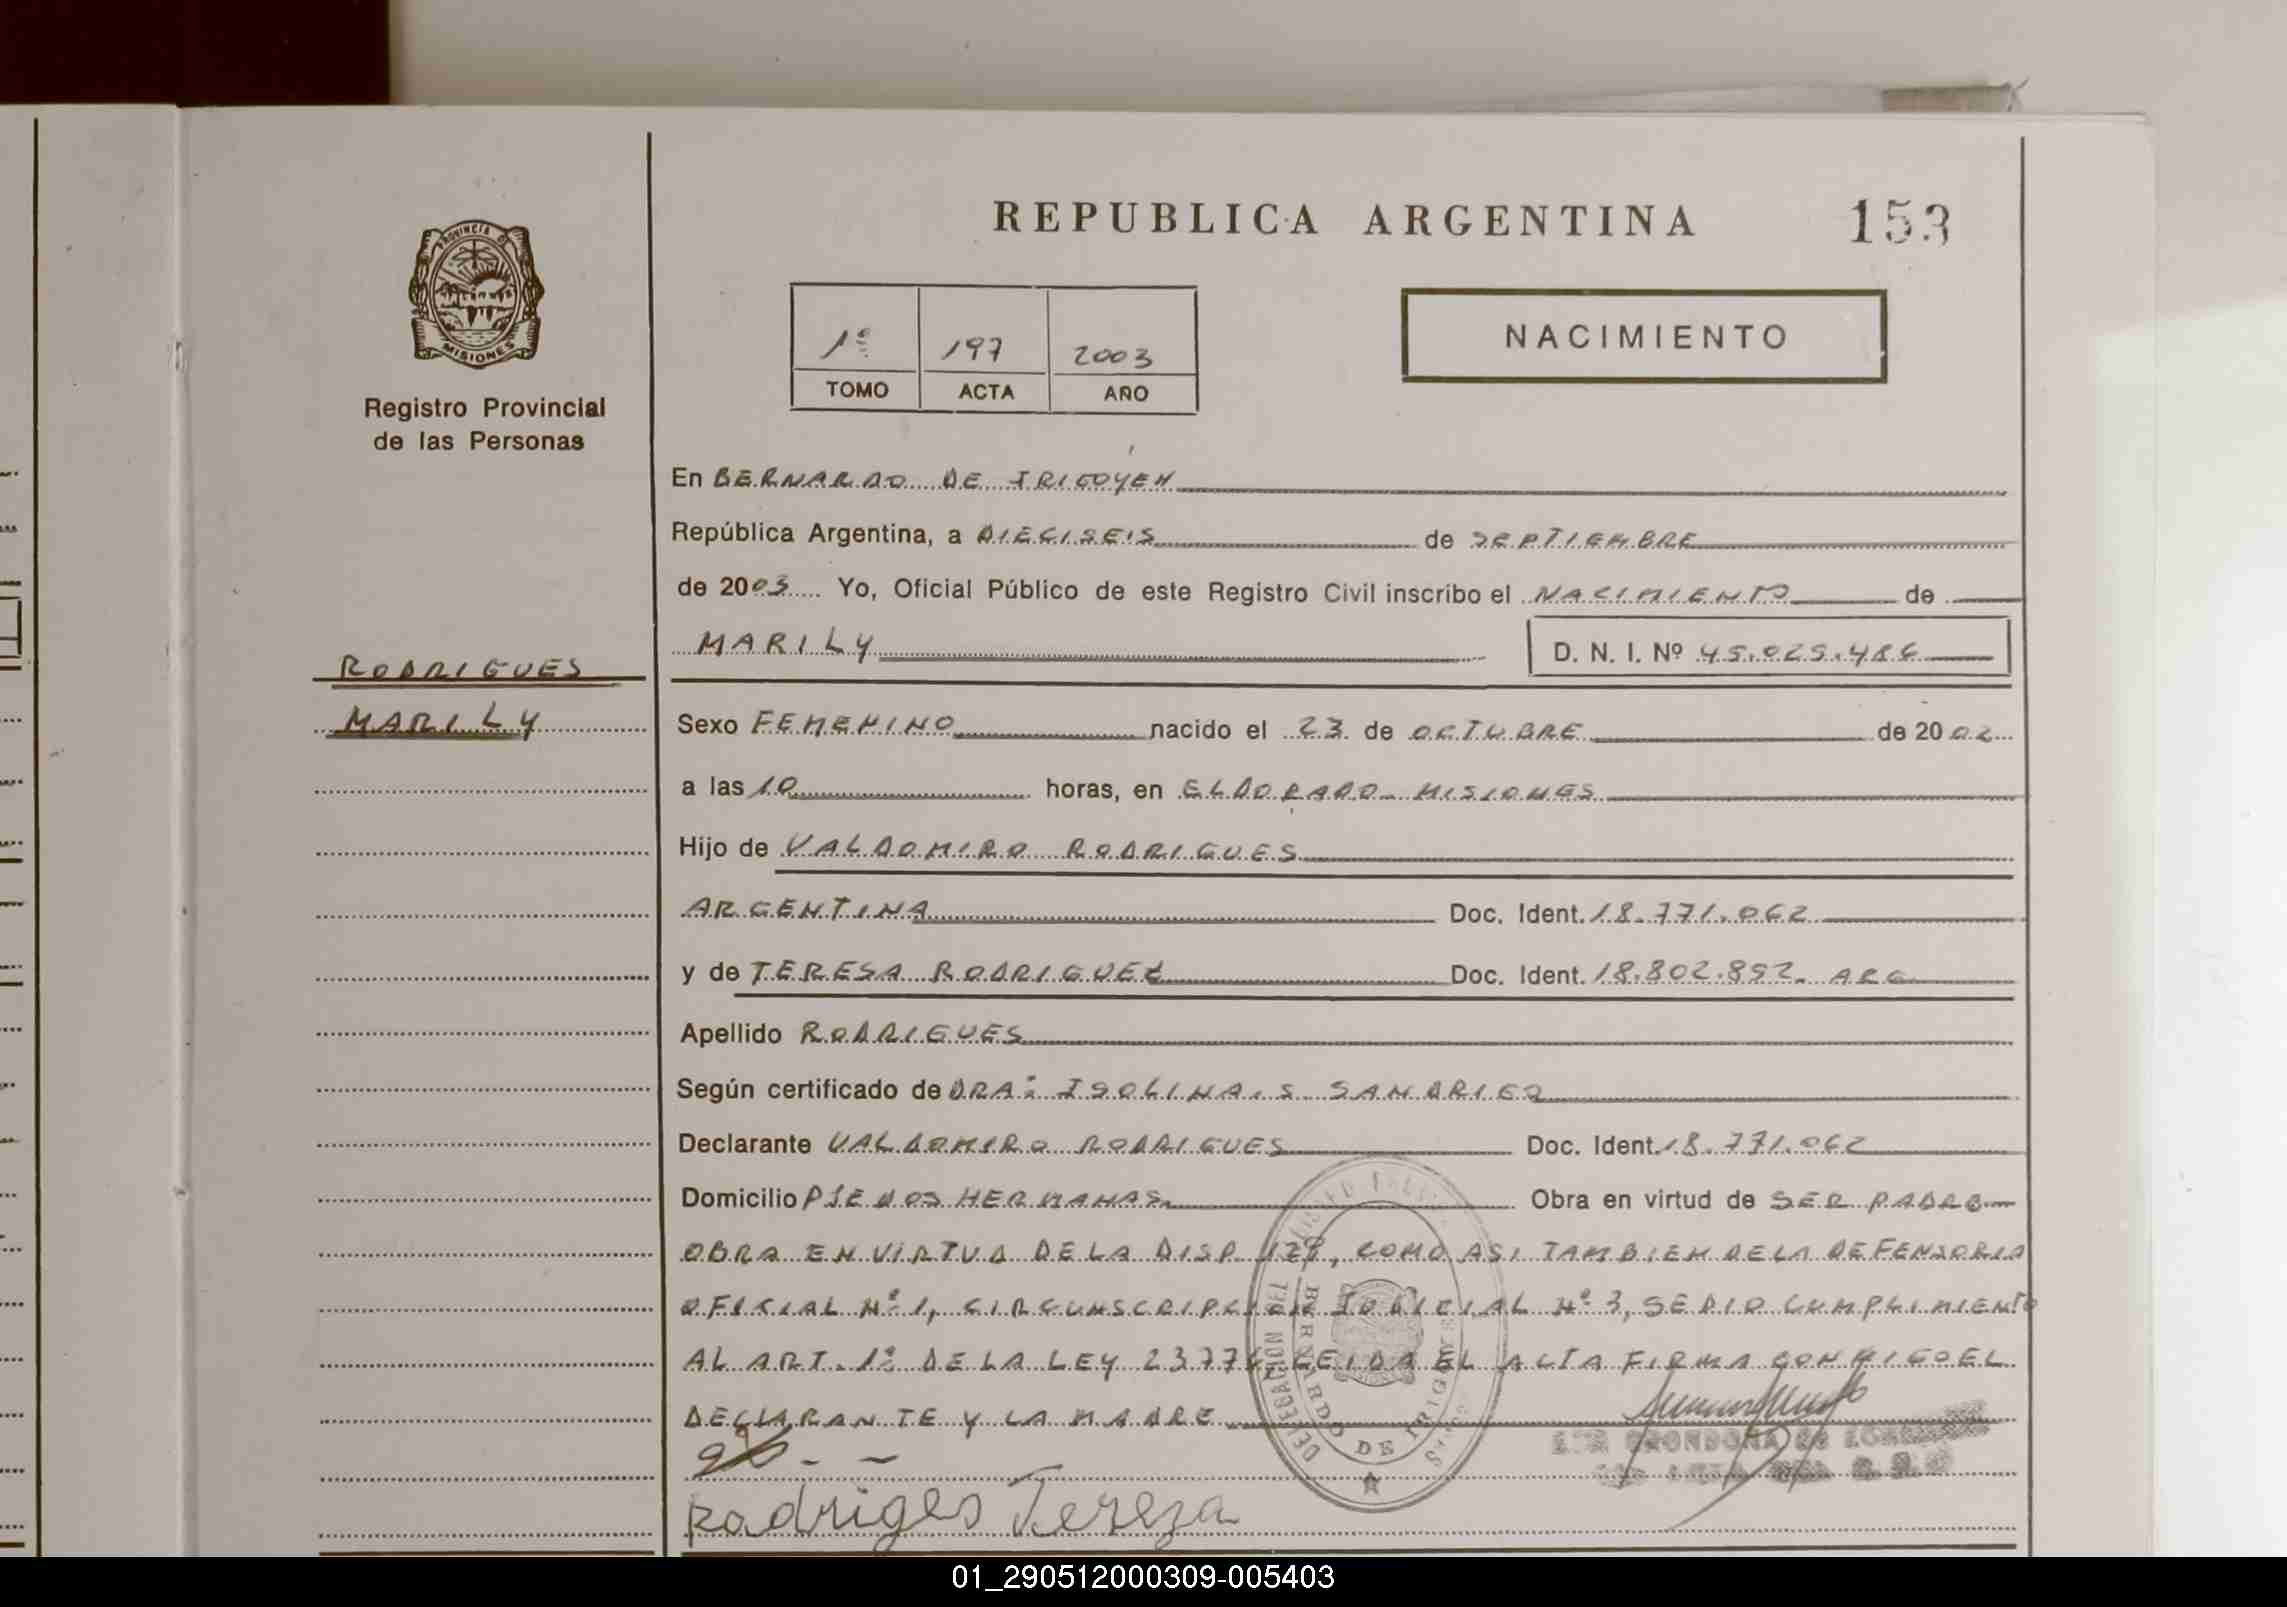 REPUBLICA ARGENTINA 153
PROVINCIA DE
MISIONES
Registro Provincial
de las Personas
1º 197 2003
TOMO ACTA AÑO
NACIMIENTO
En BERNARDO DE IRIGOYEN
República Argentina, a DIECISEIS de SEPTIEMBRE
de 2003 Yo, Oficial Público de este Registro Civil inscribo el NACIMIENTO de
MARILY D. N. I. Nº 45.025.486
RODRIGUES
MARILY
Sexo FEMENINO nacido el 23 de OCTUBRE de 2002
a las 10 horas, en ELDORADO MISIONES
Hijo de VALDOMIRO RODRIGUES
ARGENTINA Doc. Ident. 18.771.062
y de TERESA RODRIGUEZ Doc. Ident. 18.802.892 ARG
Apellido RODRIGUES
Según certificado de DRA: ISOLINA S SANDRIGO
Declarante VALDOMIRO RODRIGUES Doc. Ident. 18.771.062
Domicilio PJE DOS HERMANAS Obra en virtud de SER PADRE
OBRA EN VIRTUD DE LA DISP 128, COMO ASI TAMBIEN DE LA DEFENSORIA
OFICIAL Nº 1, CIRCUNSCRIPCION JUDICIAL Nº 3, SE DIO CUMPLIMIENTO
AL ART. 1º DE LA LEY 23776 LEIDA EL ACTA FIRMA CONMIGO EL
DECLARANTE Y LA MADRE
DELEGACION DEL
BERNARDO DE IRIGOYEN
Rodriges Tereza
01_290512000309-005403